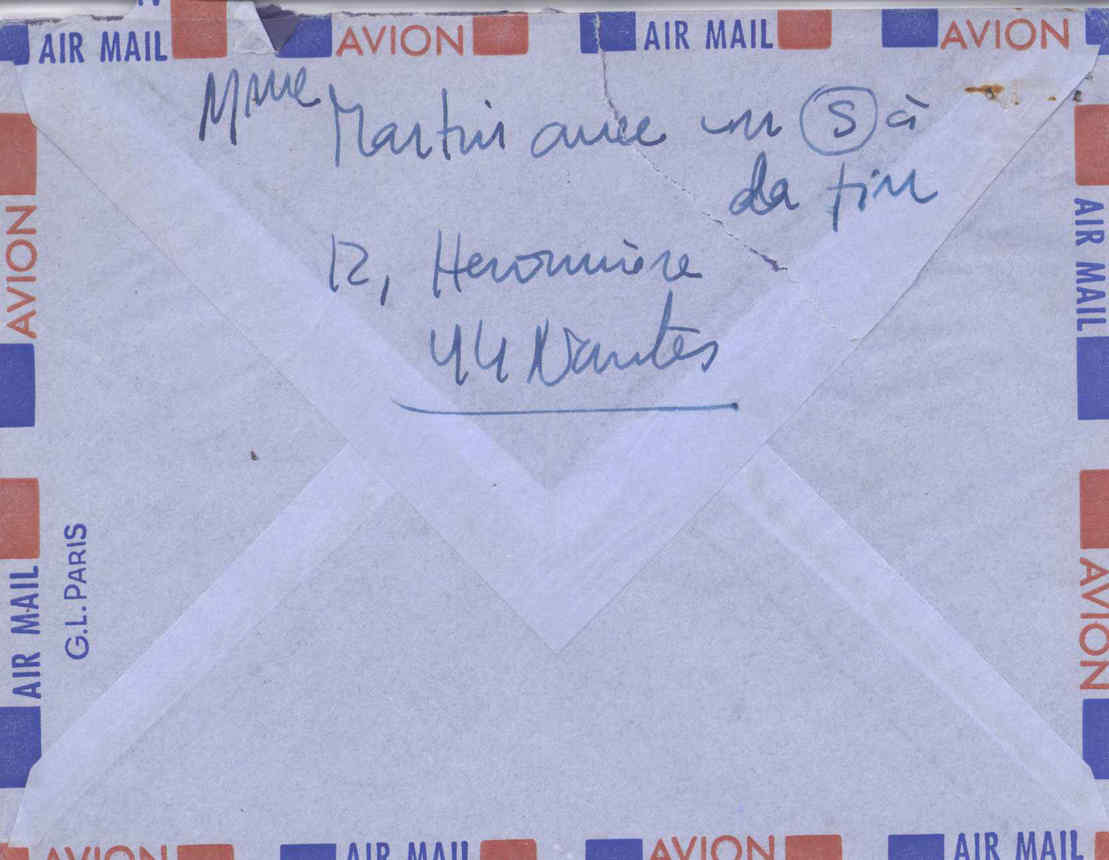 AIR MAIL AVION AIR MAIL AVION
Mme Martin avec un S à
la fin
12, Heronnière
44 Nantes
AVION
AIR MAIL
G.L. PARIS
AIR MAIL
AVION
AVION AIR MAIL AVION AIR MAIL